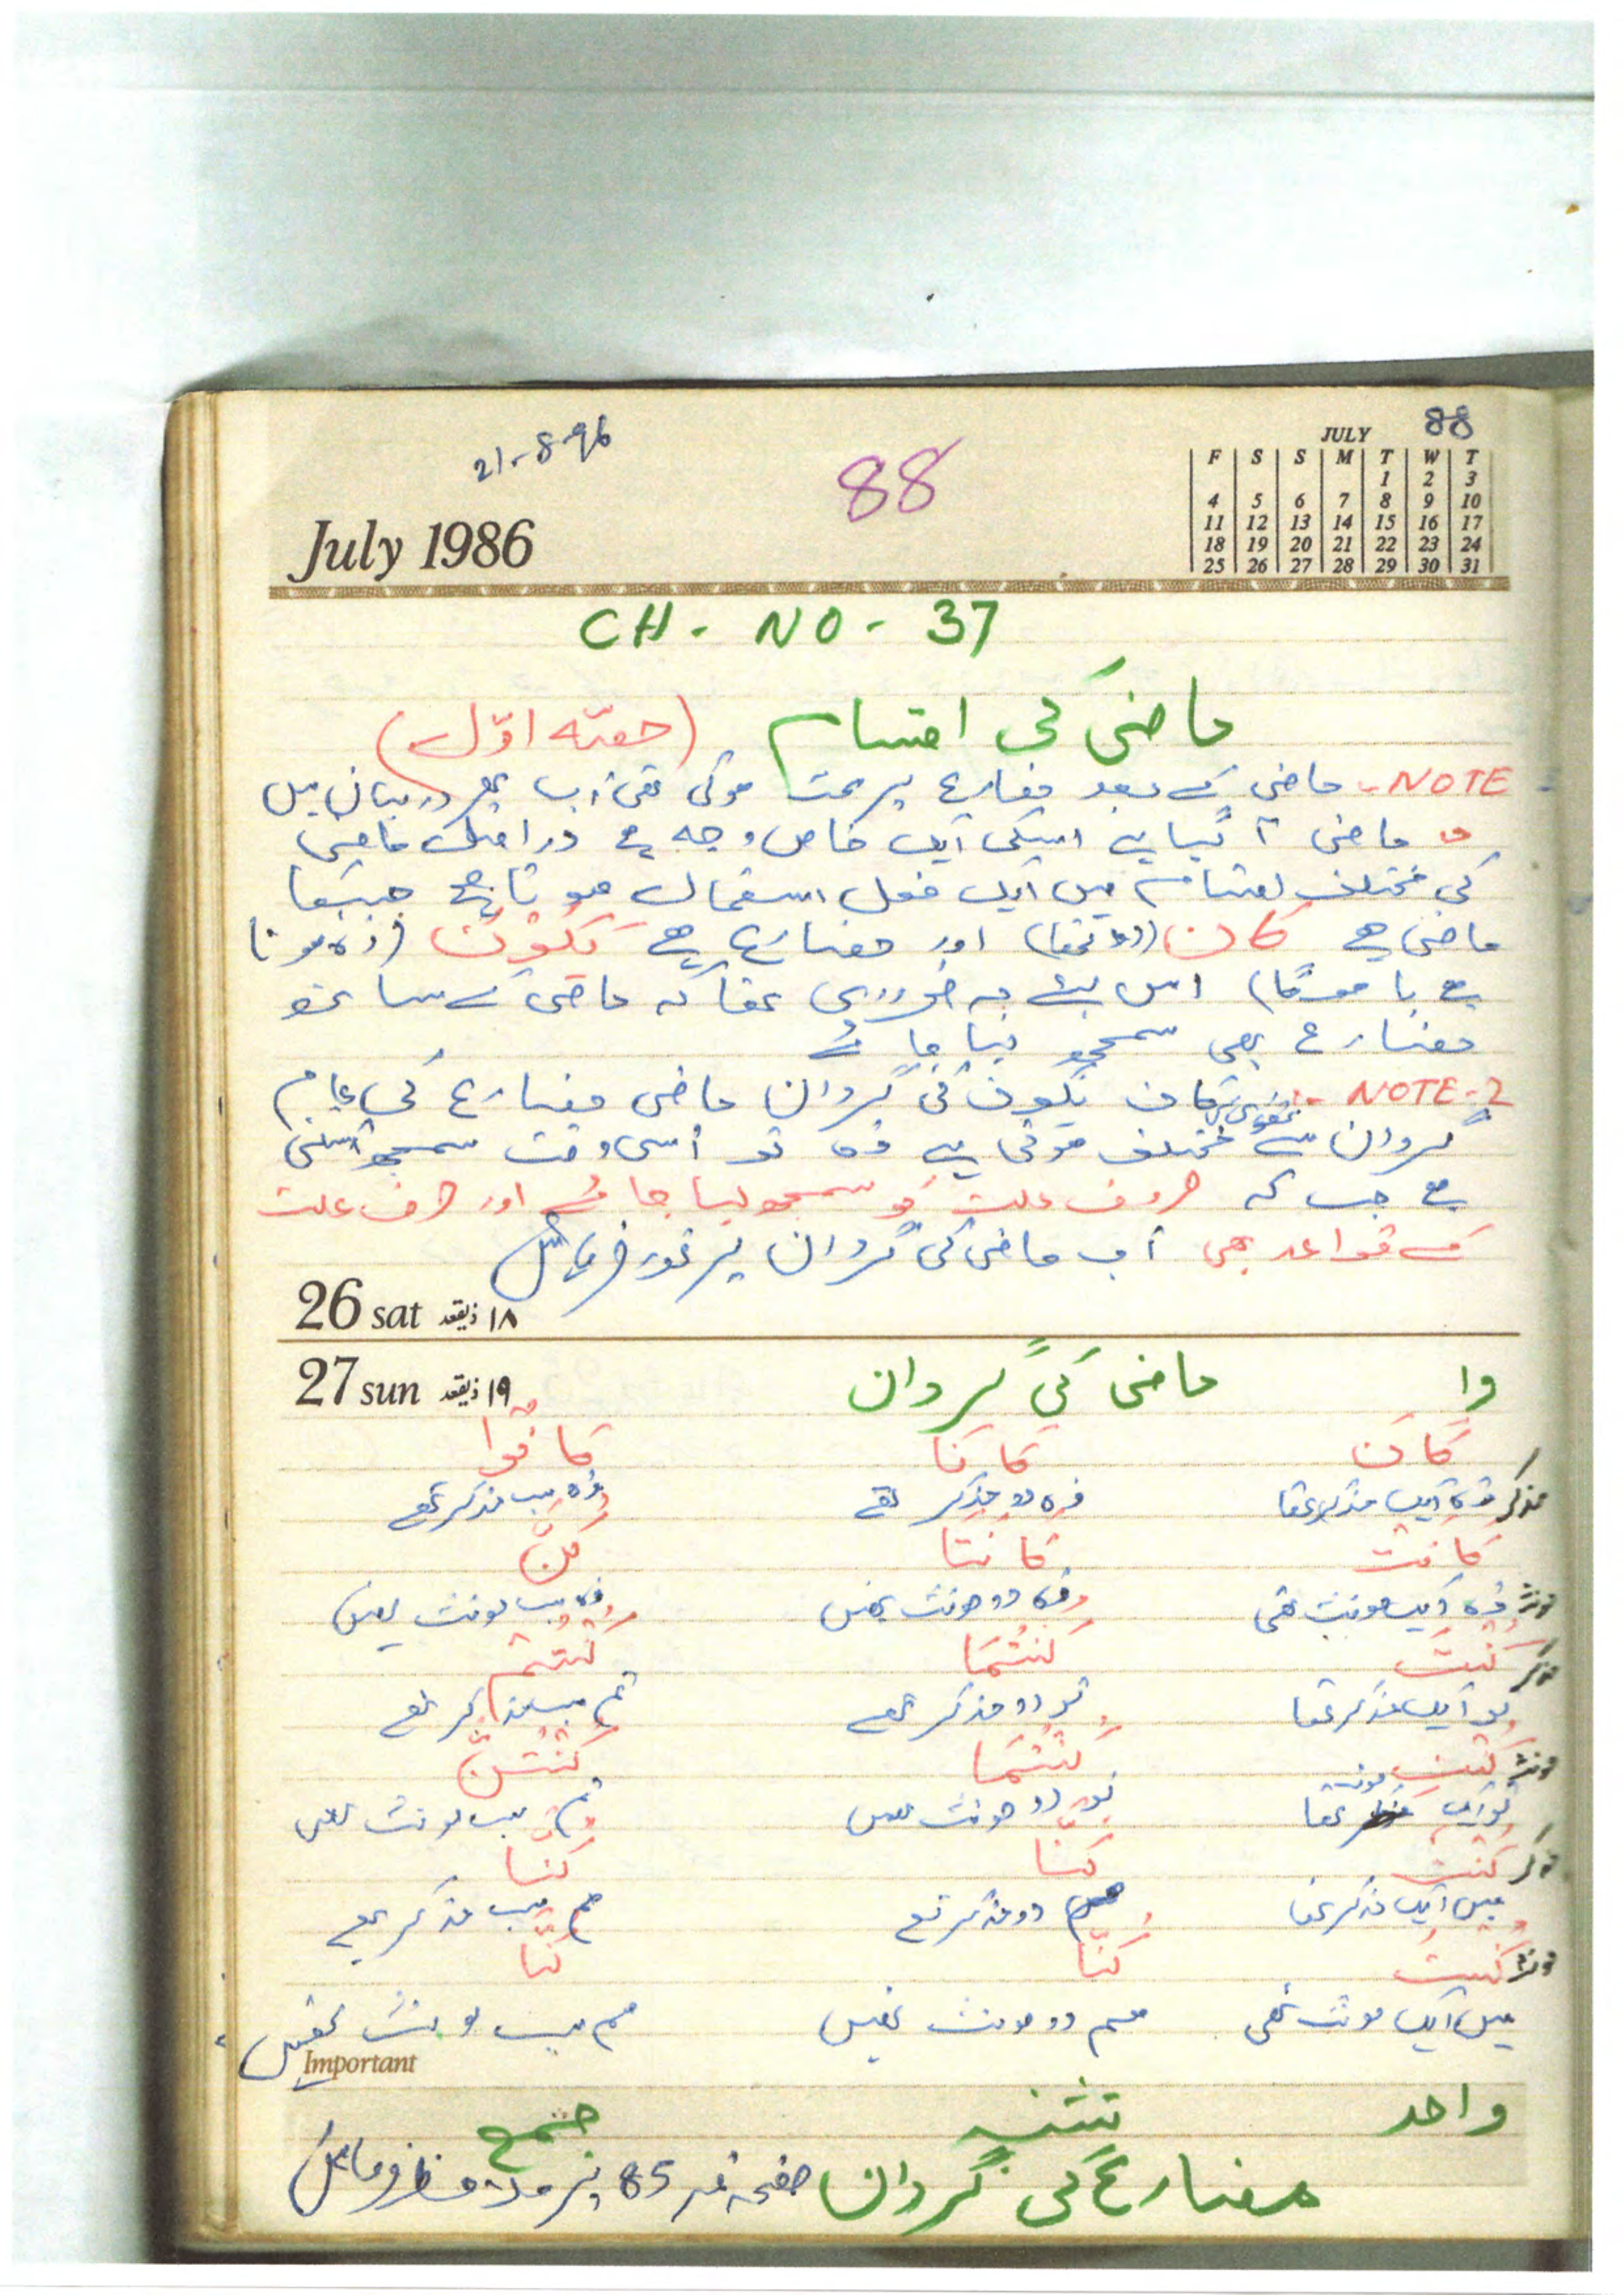 21-8-96
88
88
JULY
F S S M T W T
1 2 3
4 5 6 7 8 9 10
11 12 13 14 15 16 17
18 19 20 21 22 23 24
25 26 27 28 29 30 31
July 1986
CH - NO - 37
ماضی کی اقسام (حصّہ اوّل)
NOTE - ماضی کے بعد مضارع پر بحث ہوئی تھی اب پھر درمیان میں
ماضی آ گیا ہے اسکی ایک خاص وجہ ہے دراصل ماضی
کی مختلف اقسام میں ایک فعل استعمال ہوتا ہے جسکا
ماضی ہے کَانَ (وہ تھا) اور مضارع ہے یَکُوْنُ (وہ ہوتا
ہے یا ہوگا) اس لئے یہ ضروری تھا کہ ماضی کے ساتھ
مضارع بھی سمجھ لیا جائے
NOTE-2 :- کان یکون کی گردان ماضی مضارع کی عام
گردان سے تھوڑی سی مختلف ہوتی ہے وہ تو اسی وقت سمجھ آسکتی
ہے جب کہ حروف علت کو سمجھ لیا جائے اور حرف علت
کے قواعد بھی اب ماضی کی گردان پر غور فرمائیں
26 sat ۱۸ ذیقعد
27 sun ۱۹ ذیقعد
ماضی کی گردان
کَانَ کَانَا کَانُوْا
مذکر وہ ایک مذکر تھا وہ دو مذکر تھے وہ سب مذکر تھے
کَانَتْ کَانَتَا کُنَّ
مونث وہ ایک مونث تھی وہ دو مونث تھیں وہ سب مونث تھیں
کُنْتَ کُنْتُمَا کُنْتُمْ
مذکر تو ایک مذکر تھا تم دو مذکر تھے تم سب مذکر تھے
کُنْتِ کُنْتُمَا کُنْتُنَّ
مونث تو ایک مونث تھا تم دو مونث تھیں تم سب مونث تھیں
کُنْتُ کُنَّا کُنَّا
مذکر میں ایک مذکر تھا ہم دو مذکر تھے ہم سب مذکر تھے
کُنْتُ کُنَّا کُنَّا
مونث میں ایک مونث تھی ہم دو مونث تھیں ہم سب مونث تھیں
Important
واحد تثنیہ جمع
مضارع کی گردان صفحہ نمبر 85 پر ملاحظہ فرمائیں